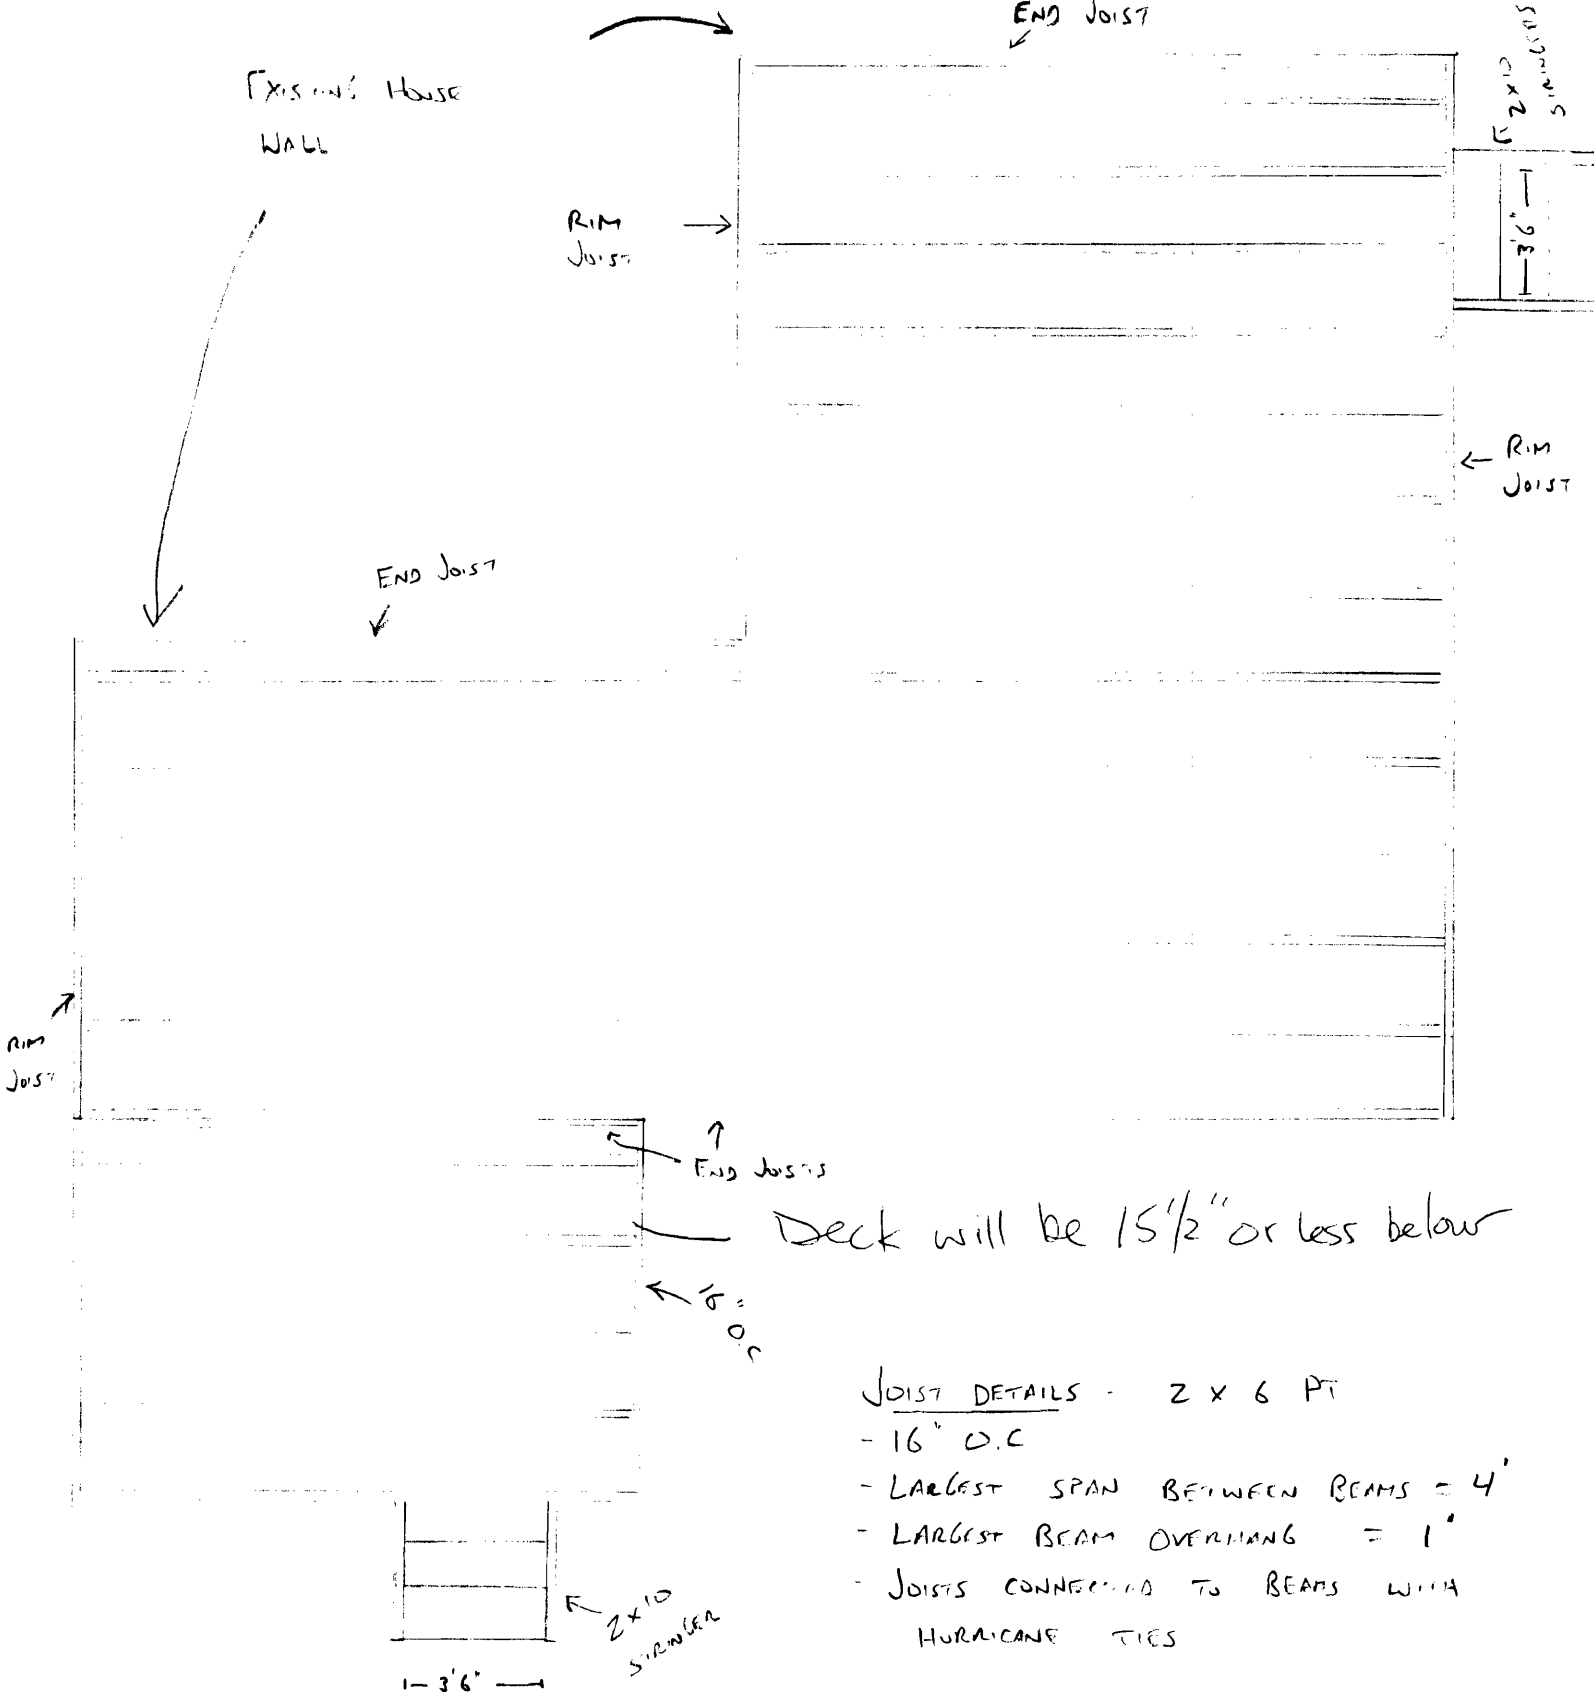 END JOIST
2x10
STRINGERS
EXISTING HOUSE
WALL
RIM
JOIST
3'6"
RIM
JOIST
END JOIST
RIM
JOIST
END JOISTS
Deck will be 15 1/2" or less below
O.C
JOIST DETAILS - 2 x 6 PT
- 16" O.C
- LARGEST SPAN BETWEEN BEAMS = 4'
- LARGEST BEAM OVERHANG = 1'
- JOISTS CONNECTED TO BEAMS WITH
HURRICANE TIES
2x10
STRINGER
3'6"